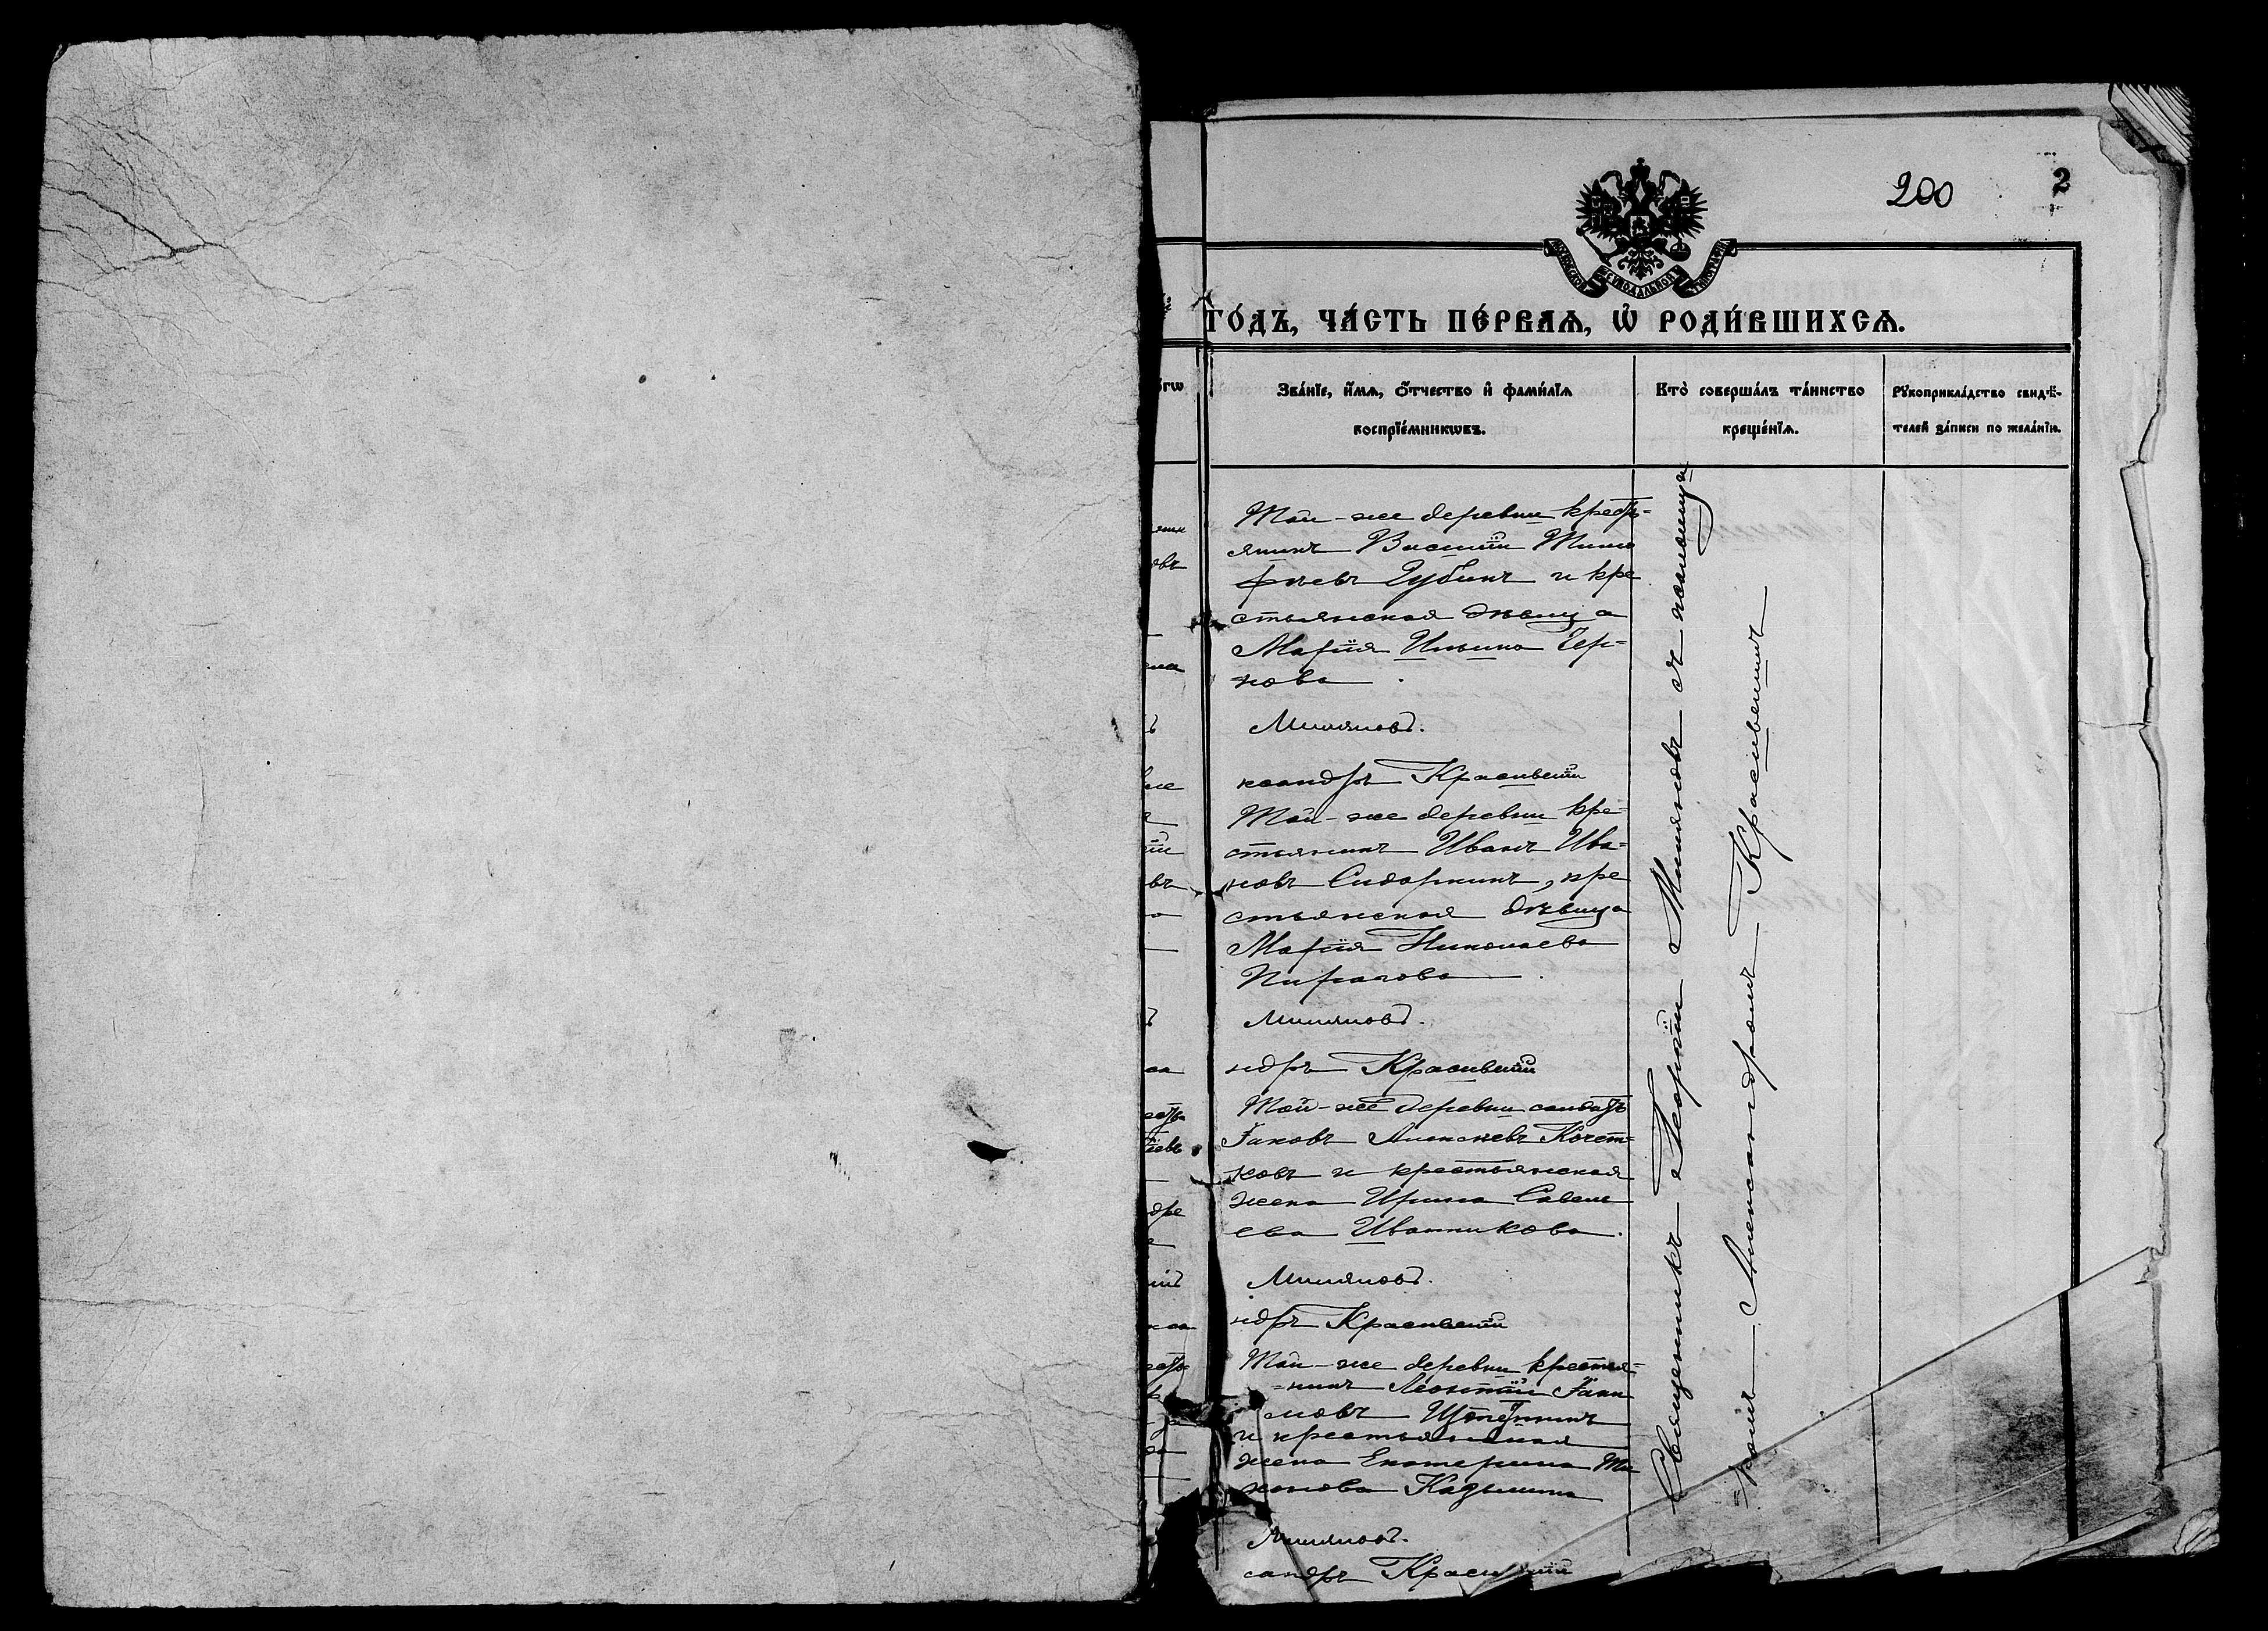 200
2
МОСКОВСКОЙ СѴНОДАЛЬНОЙ ТИПОГРАФІИ
ГО́ДЪ, ЧА́СТЬ ПЕ́РВАѦ, Ѡ҆ РОДИ́ВШИХСѦ.
Зва́нїе, и҆́мѧ, ѻ҆́тчество и҆ фами́лїѧ
воспрїе́мникѡвъ.
Кто̀ соверша́лъ та́инство
креще́нїѧ.
Рꙋкоприкла́дство свидѣ́-
телей за́писи по жела́нїю.
Той-же деревни кресть=
янинъ Василій Тимо
феевъ Губинъ и кре
стьянская дѣвица
Марія Ильина Чер=
нова.
Миляновъ.
ксандръ Красивскій
Той-же деревни кре=
стьянинъ Иванъ Ива=
новъ Сидоркинъ, кре
стьянская дѣвица
Марія Николаева
Пирагова.
Миляновъ.
ндръ Красивскій
Той-же деревни солдатъ
Іаковъ Алексѣевъ Кочет=
ковъ и крестьянская
жена Ирина Савель
ева Иванникова.
Миляновъ.
ндръ Красивскій
Той-же деревни крестья=
=нинъ Леонтій Іаки
мовъ
и крестьянская
жена Екатерина Ти
хонова
Миляновъ.
сандръ Красивскій
Священникъ Георгій Миляновъ съ псаломщи=
=комъ Александромъ Красивскимъ